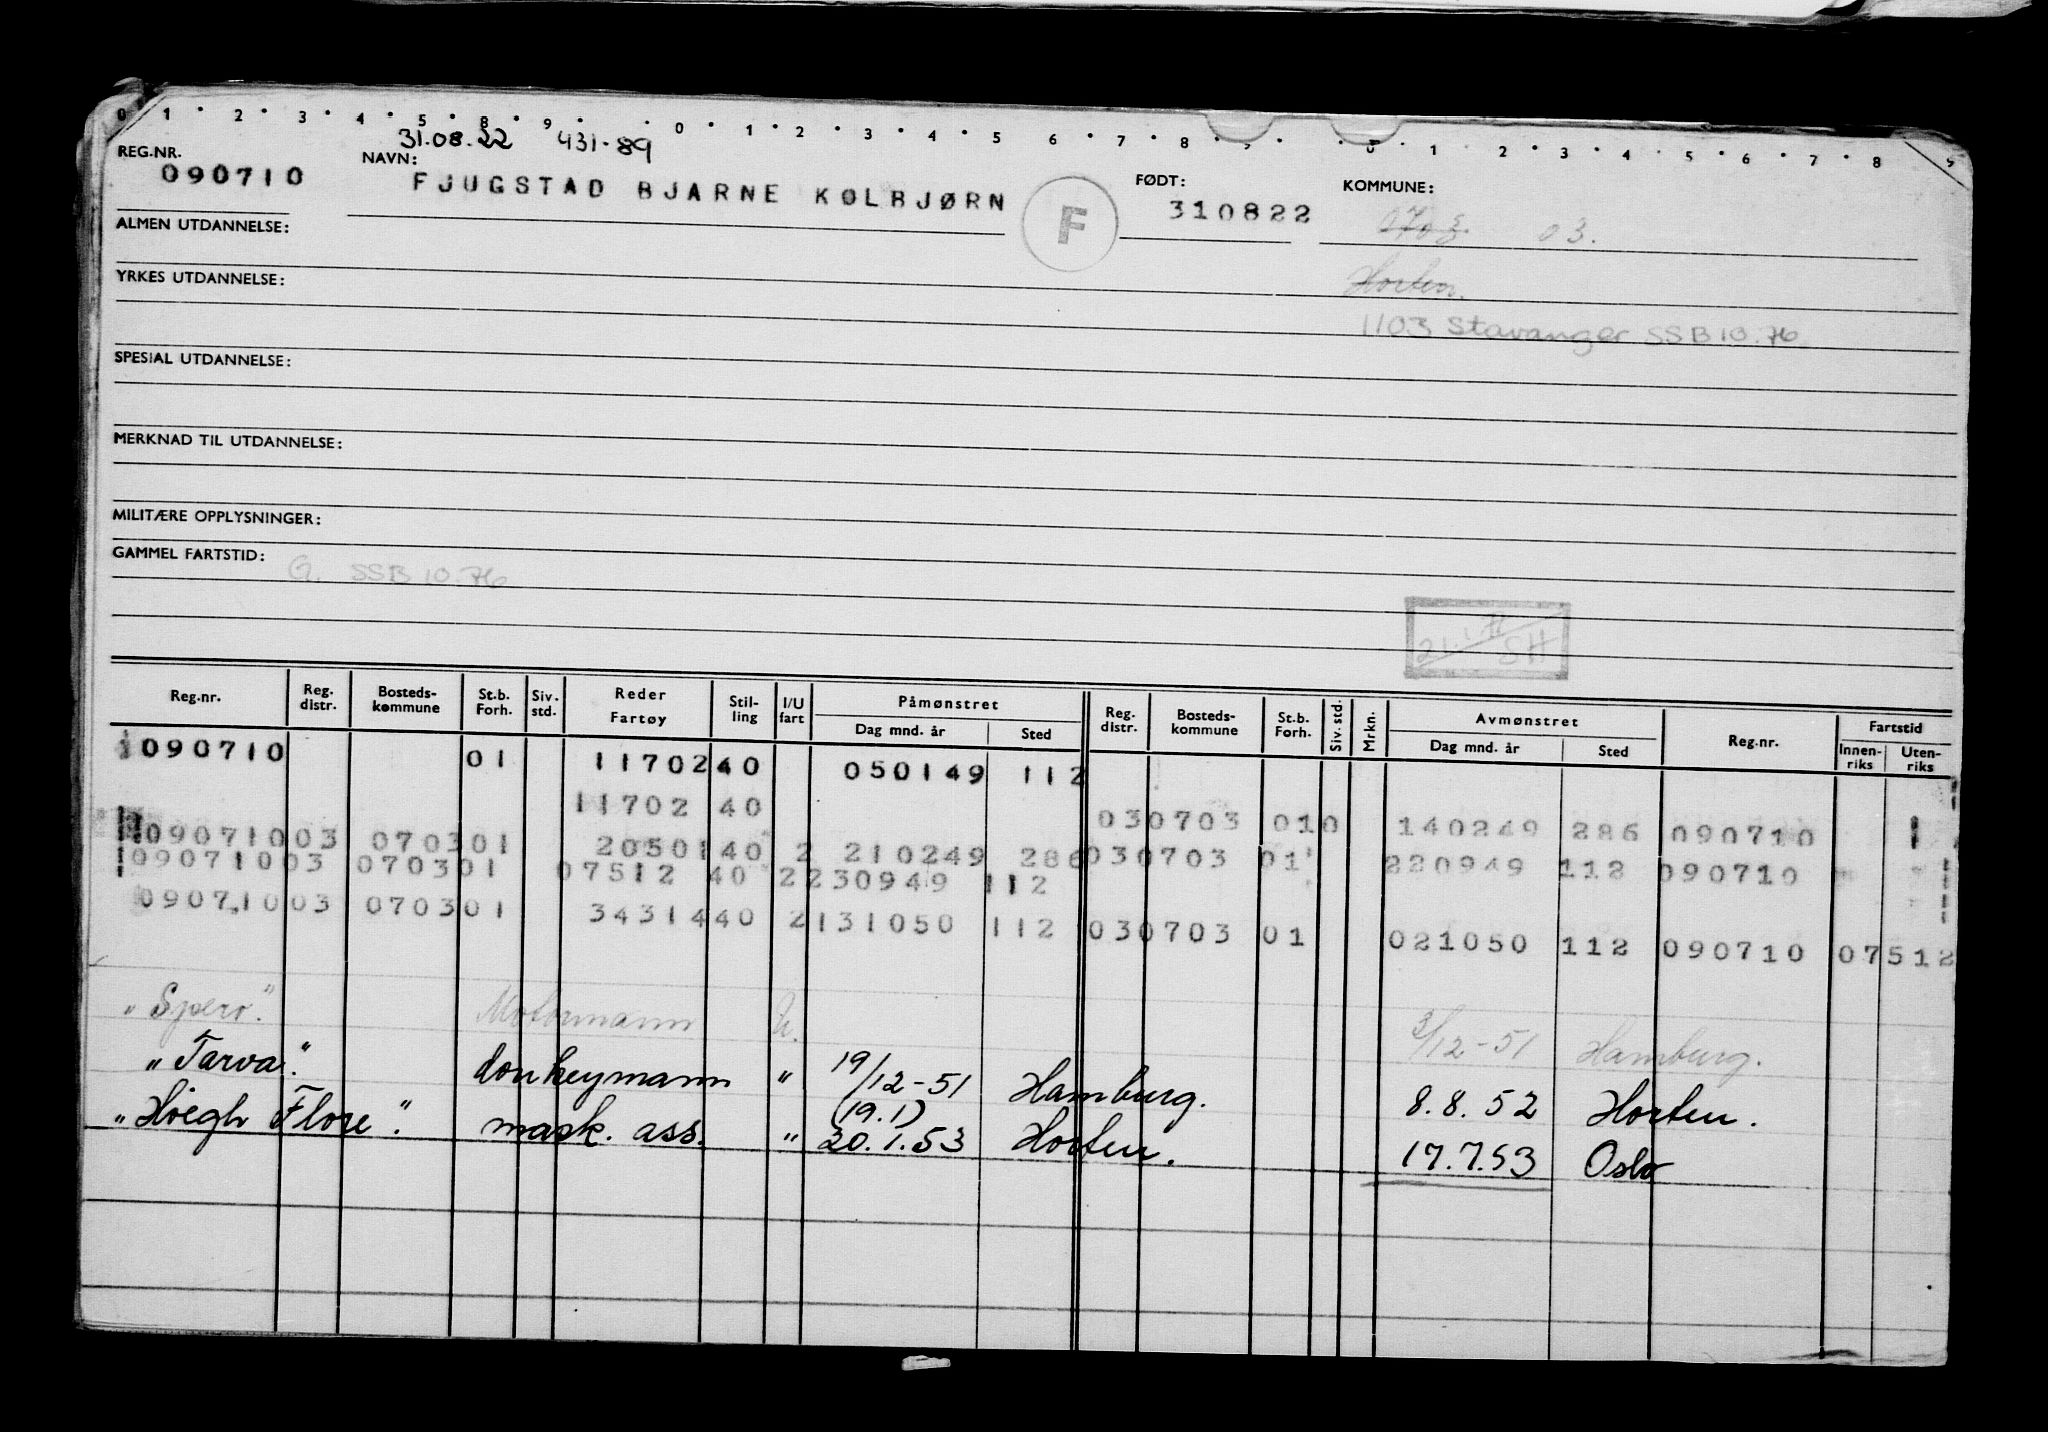 0 1 2 3 4 5 8 9 0 1 2 3 4 5 6 7 8 0 1 2 3 4 5 6 7 8 9
31.08.22 431-89
REG.NR. NAVN: FØDT: KOMMUNE:
090710 FJUGSTAD BJARNE KOLBJØRN F 310822 0703 03.
ALMEN UTDANNELSE:
YRKES UTDANNELSE: Horten.
1103 Stavanger SSB 10.76
SPESIAL UTDANNELSE:
MERKNAD TIL UTDANNELSE:
MILITÆRE OPPLYSNINGER:
GAMMEL FARTSTID: G. SSB 10.76
SH
Reg.nr. Reg. distr. Bosteds-kommune St.b. Forh. Siv. std. Reder Fartøy Stil-ling I/U fart Påmønstret Dag mnd. år Sted Reg. distr. Bosteds-kommune St.b. Forh. Siv. std. Mrkn. Avmønstret Dag mnd. år Sted Reg.nr. Fartstid Innen-riks Uten-riks
090710 01 11702 40 050149 112
11702 40 030703 010 140249 286 090710
090710 03 0703 01 20501 40 2 210249 286 030703 01 220949 112 090710
090710 03 0703 01 07512 40 2 230949 112
090710 03 0703 01 34314 40 2 131050 112 030703 01 021050 112 090710 07512
"Spero". Motormann U. 3/12-51 Hamburg.
"Tarva". donkeymann " 19/12-51 Hamburg. 8.8.52 Horten.
(19.1)
"Høegh Flore". mask. ass. " 20.1.53 Horten. 17.7.53 Oslo